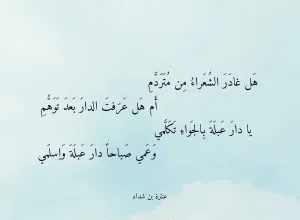 هَل غادَرَ الشُعَراءُ مِن مُتَرَدَّمِ
أَم هَل عَرَفتَ الدارَ بَعدَ تَوَهُّمِ
يا دارَ عَبلَةَ بِالجَواءِ تَكَلَّمي
وَعَمي صَباحاً دارَ عَبلَةَ وَاِسلَمي
عنترة بن شداد